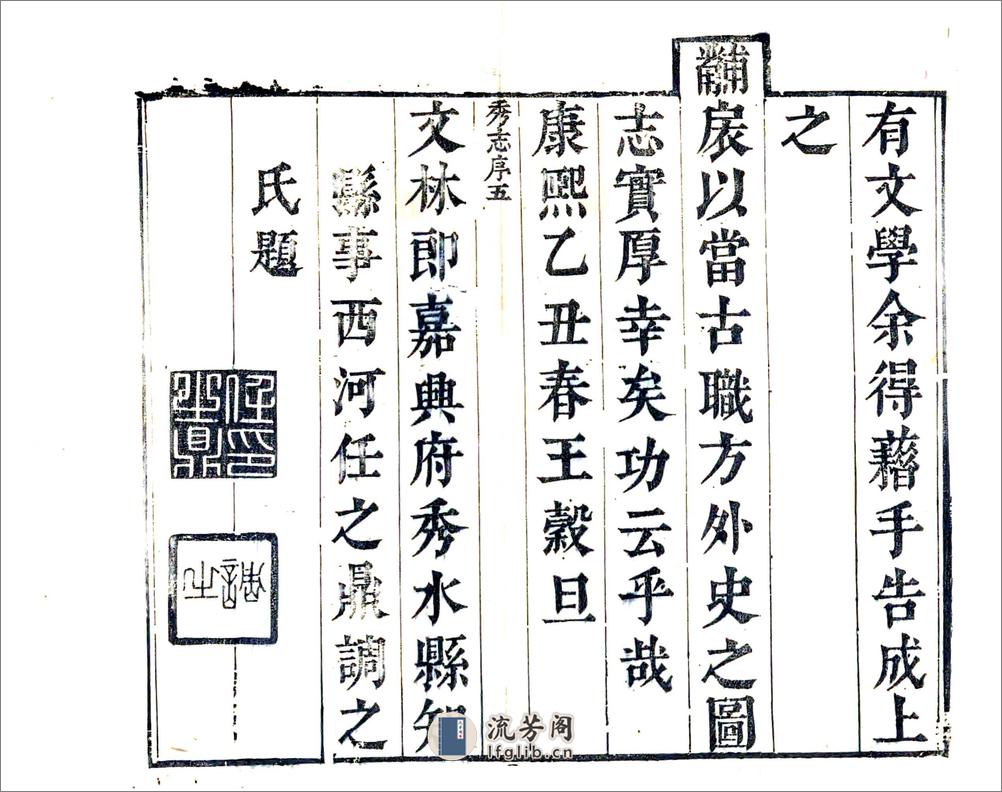 有文學余得藉手告成上
之
黼扆以當古職方外史之圖
志實厚幸矣功云乎哉
康熙乙丑春王穀旦
秀志序五
文林郎嘉興府秀水縣知
縣事西河任之鼎調之
氏題
任之鼎印
調之
流芳阁
lfglib.cn